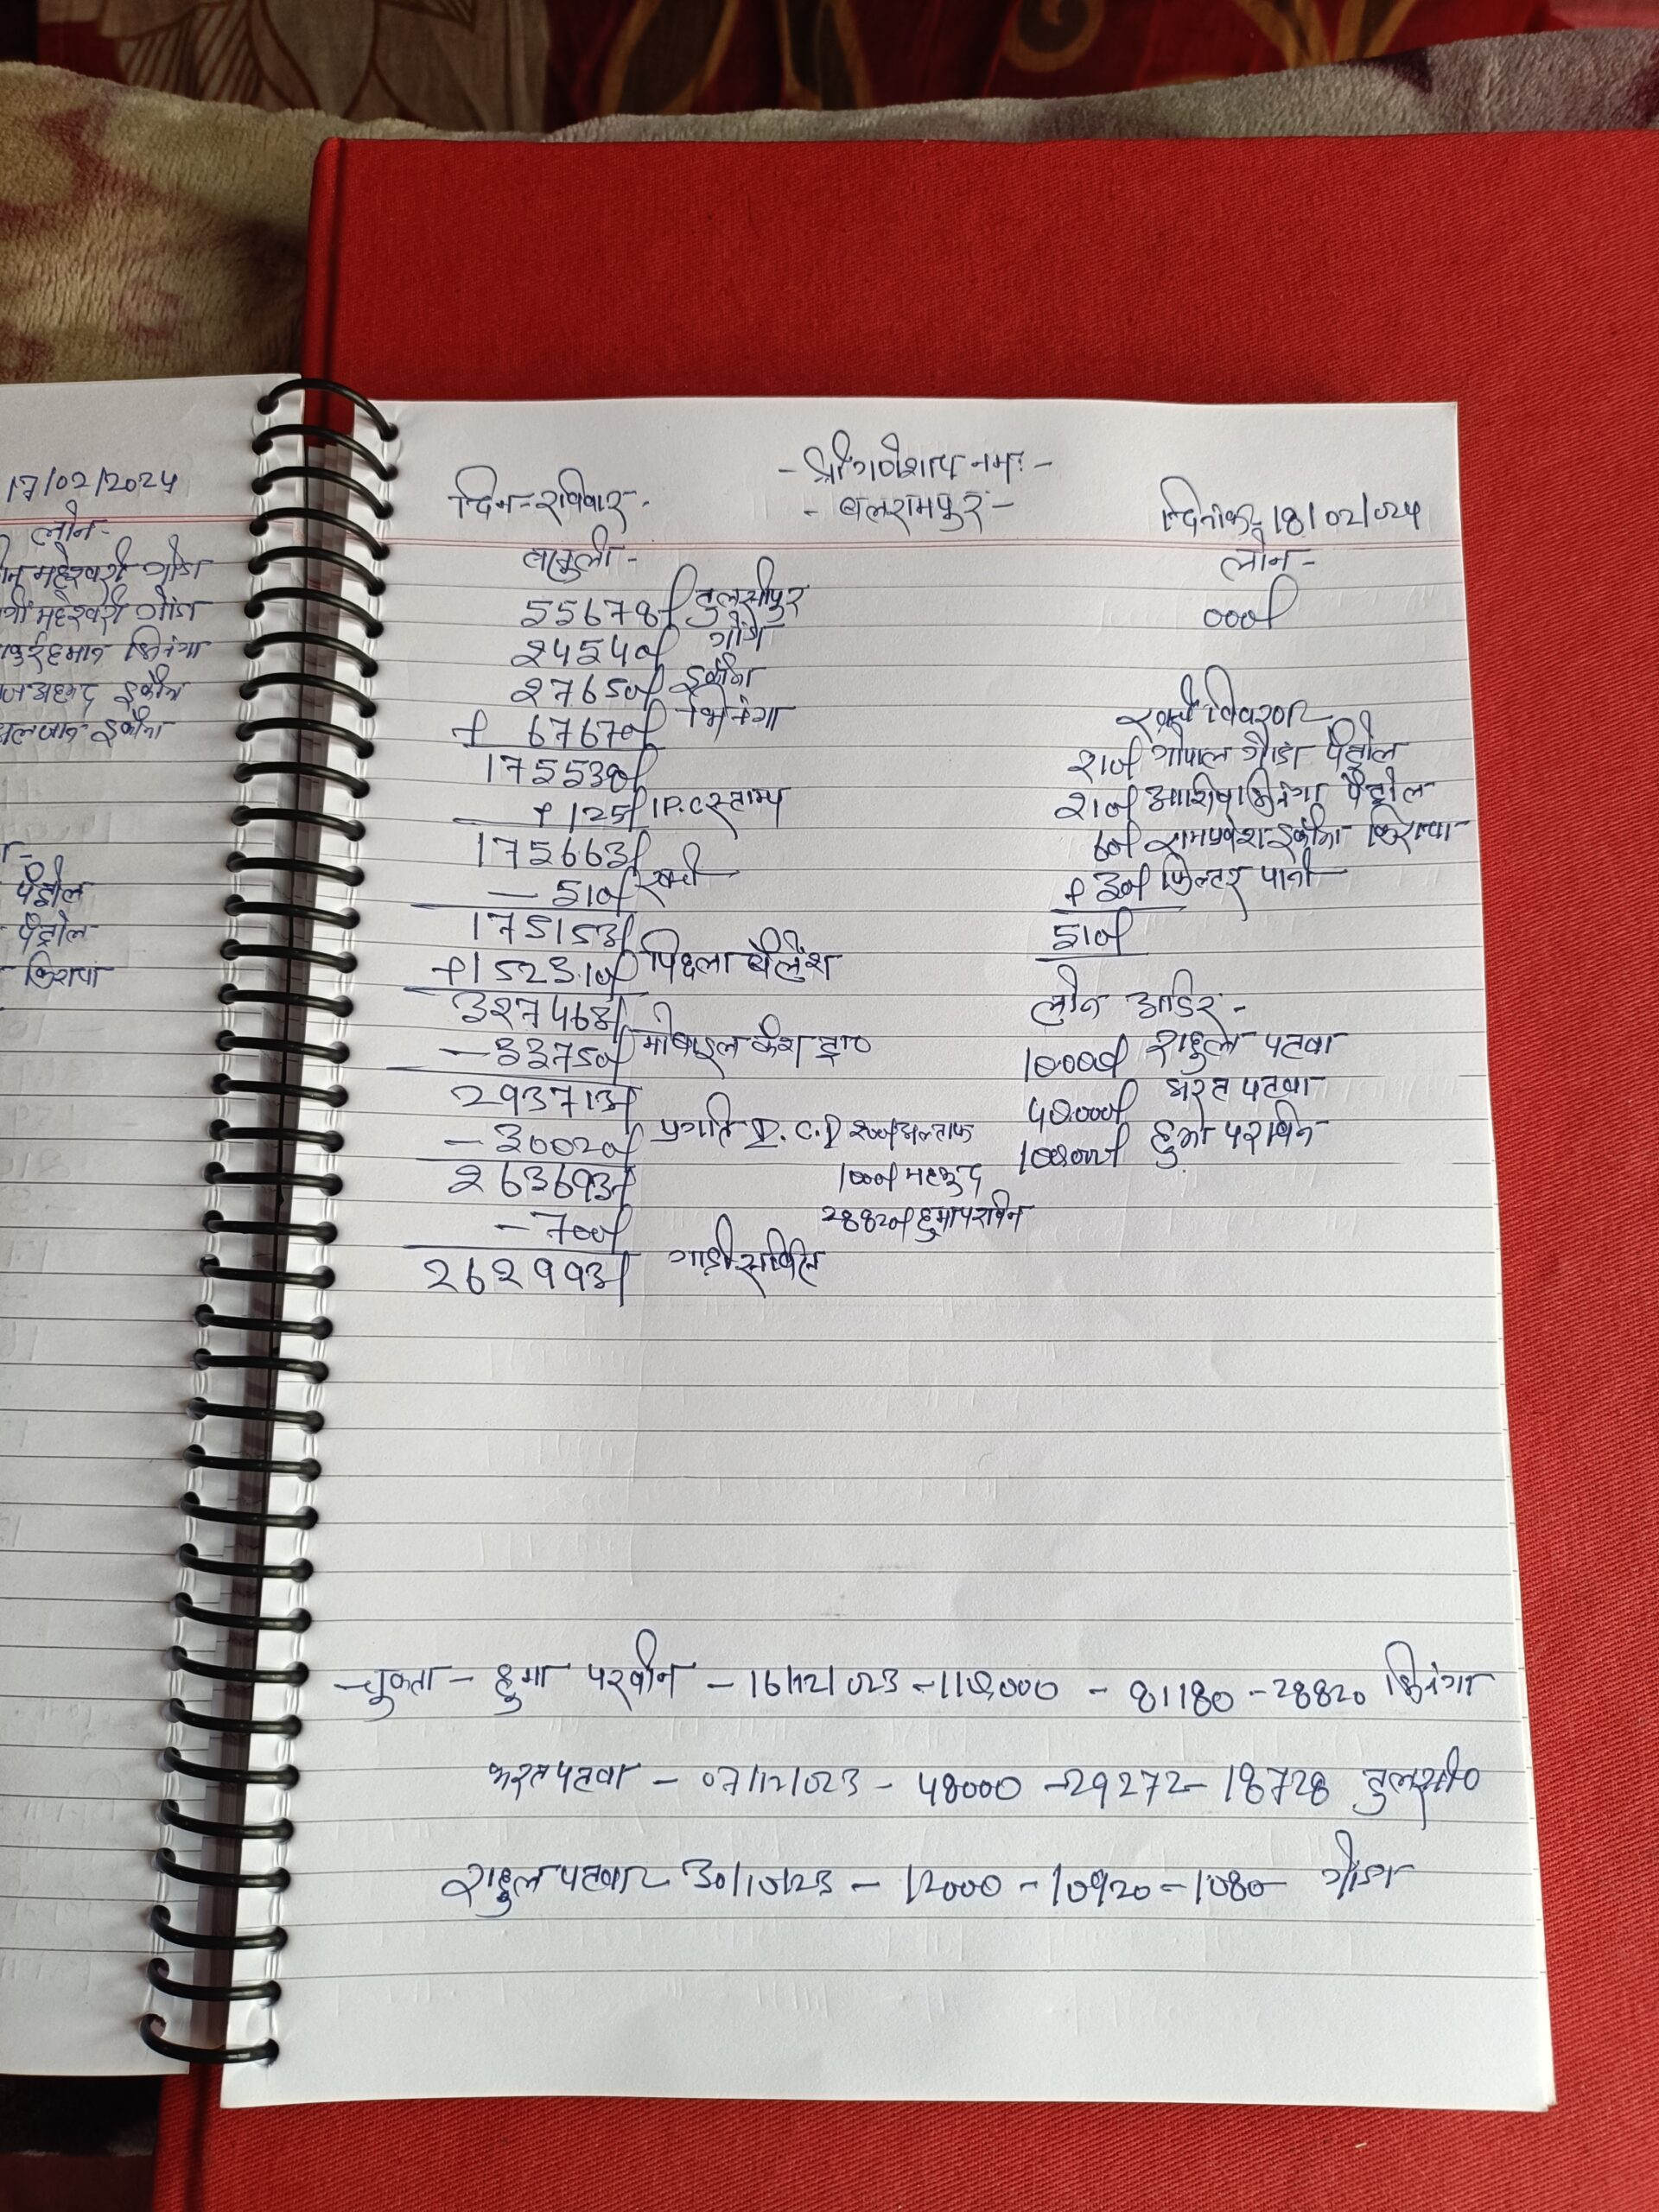 17/02/2024
लोन-
महेश्वरी गोंडा
महेश्वरी गोंडा
भिनंगा
इकौना
इकौना
पैट्रोल
पैट्रोल
किराया
-श्री गणेशाय नमः-
दिन-रविवार-
-बलरामपुर-
दिनांक, 18/02/024
वासुली-
लोन-
55678/ तुलसीपुर
24540/ गोंडा
27650/ इकौना
+ 67670/ भिनंगा
175538/
+125/ 1P.C स्टाम्प
175663/
-510/ खर्चा
175153/
+152310/ पिछला बैलेंश
327463/
-33750/ मोबाइल कैश ट्रा०
293713/
-30020/ प्रगति D.C.D 200/ अल्ताफ
263693/ 1000/ महफूद
-700/ 28820/ हुमा परवीन
262993/ गाड़ी सर्विस
000/
खर्च विवरण
210/ गोपाल गोंडा पैट्रोल
210/ आशिष भिनंगा पैट्रोल
60/ रामप्रवेश इकौना किराया
+ 30/ फिल्टर पानी
510/
लोन आर्डर-
10000/ राहुल पटवा
40000/ भरत पटवा
100000/ हुमा परवीन
चुकता - हुमा परवीन - 16/12/023 - 110000 - 81180 - 28820 भिनंगा
भरत पटवा - 07/12/023 - 48000 - 29272 - 18728 तुलसी०
राहुल पटवा - 30/10/23 - 12000 - 10920 - 1080 गोंडा